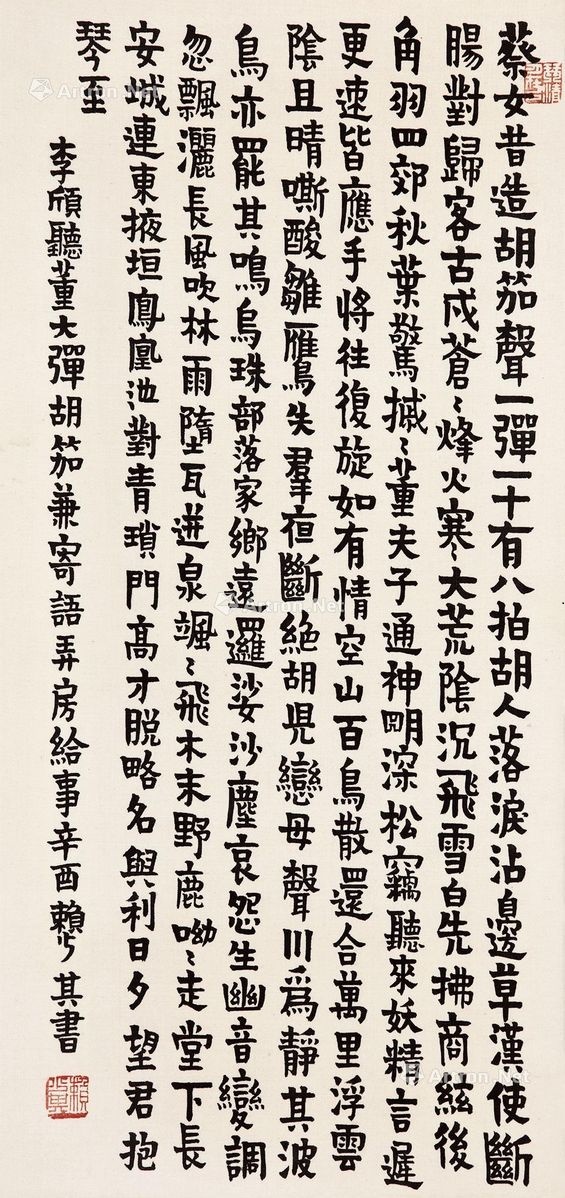 蔡女昔造胡笳聲一彈一十有八拍胡人落淚沾邊草漢使斷
腸對歸客古戍蒼〻烽火寒〻大荒陰沉飛雪白先拂商絃後
角羽四郊秋葉驚摵〻董夫子通神明深松竊聽來妖精言遲
更速皆應手將往復旋如有情空山百鳥散還合萬里浮雲
陰且晴嘶酸雛雁失羣夜斷絕胡児戀母聲川為靜其波
鳥亦罷其鳴烏珠部落家鄉遠邏娑沙塵哀怨生幽音變調
忽飄灑長風吹林雨墮瓦迸泉颯〻飛木末野鹿呦〻走堂下長
安城連東掖垣鳳凰池對青瑣門高才脱略名與利日夕望君抱
琴至
李頎聽董大彈胡笳兼寄語弄房給事辛酉賴少其書
Artron.Net